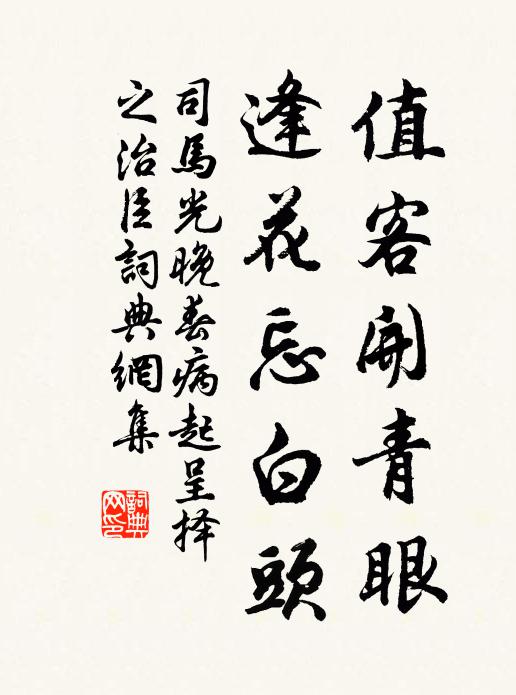 值客開青眼
逢花忘白頭
司馬光晚春病起呈择
之治臣詞典網集
詞典
网印